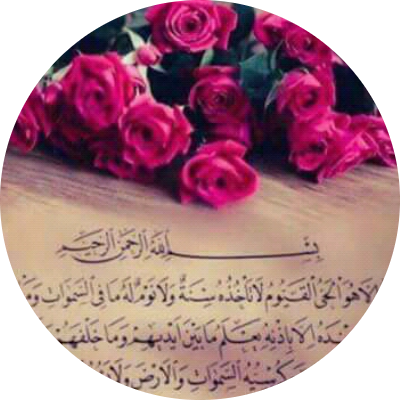 بِسْمِ اللهِ الرَّحْمٰنِ الرَّحِيْمِ
اِلَّا هُوَ اَلْحَىُّ الْقَيُّوْمُ لَا تَأْخُذُهٗ سِنَةٌ وَلَا نَوْمٌ لَهٗ مَا فِى السَّمٰوَاتِ وَمَا
عِنْدَهٗ اِلَّا بِاِذْنِهٖ يَعْلَمُ مَا بَيْنَ اَيْدِيْهِمْ وَمَا خَلْفَهُمْ
كُرْسِيُّهُ السَّمٰوَاتِ وَالْاَرْضَ وَلَا